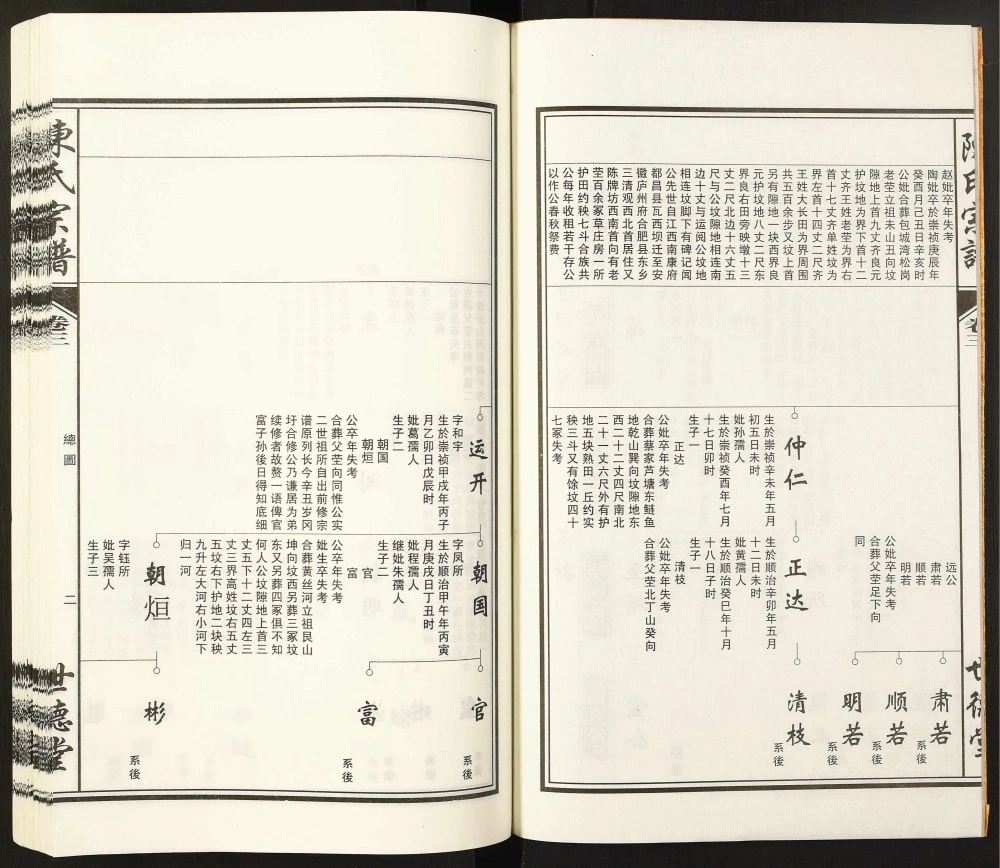 陳氏宗譜
卷三
世德堂
赵妣卒年失考
陶妣卒於崇祯庚辰年
癸酉月己丑日辛亥时
公妣合葬包城湾松岗
老茔立祖未山丑向坟
隙地上首九丈齐良元
护坟地为界下首十二
丈齐王姓老茔为界右
首十七丈齐单姓坟为
界左首十四丈二尺齐
王姓大长田为界周围
共五百余步又坟上首
另有隙地一块西界良
元护坟地八丈二尺东
界良右田旁映墩十三
丈二尺北边十六丈五
尺与公坟隙地相连南
边十丈与运阅公坟地
相连坟脚下有碑记闻
公先世自江西南康府
都昌县瓦西坝迁至安
徽庐州府合肥县东乡
三清观西北首居住又
陈牌坊西南首向有老
茔百余冢草庄房一所
护田约秧七斗合族共
公每年收租若干存公
以作公春秋祭费
远公
肃若
顺若
明若
公妣卒年失考
合葬父茔足下向
同
肃若
系後
顺若
系後
明若
系後
仲仁
生於崇祯辛未年五月
初五日未时
妣孙孺人
生於崇祯癸酉年七月
十七日卯时
生子一
正达
公妣卒年失考
合葬蔡家芦塘东鲢鱼
地乾山巽向坟隙地东
西二十二丈四尺南北
二十一丈六尺外有护
地五块熟田一丘约实
秧三斗又有馀坟四十
七冢失考
正达
生於顺治辛卯年五月
十二日未时
妣黄孺人
生於顺治癸巳年十月
十八日子时
生子一
清枝
公妣卒年失考
合葬父茔北丁山癸向
清枝
系後
运开
字和字
生於崇祯甲戌年丙子
月乙卯日戊辰时
妣葛孺人
生子二
朝国
朝烜
公卒年失考
合葬父茔向同惟公实
二世祖所自出前修宗
谱原列长今辛丑岁冈
圩合修公乃谦居为弟
续修者故赘一语俾官
富子孙後日得知底细
朝国
字凤所
生於顺治甲午年丙寅
月庚戌日丁丑时
妣程孺人
继妣朱孺人
生子二
官
富
公卒年失考
妣生卒失考
合葬黄丝河立祖艮山
坤向坟西另葬三冢坟
东又另葬四冢俱不知
何人公坟隙地上首三
丈五下十二丈四左三
丈三界高姓坟右五丈
五坟右下护地二块秧
九升左大河右小河下
归一河
官
系後
富
系後
朝烜
字钰所
妣吴孺人
生子三
彬
系後
陳氏宗譜
卷三
總圖
二
世德堂